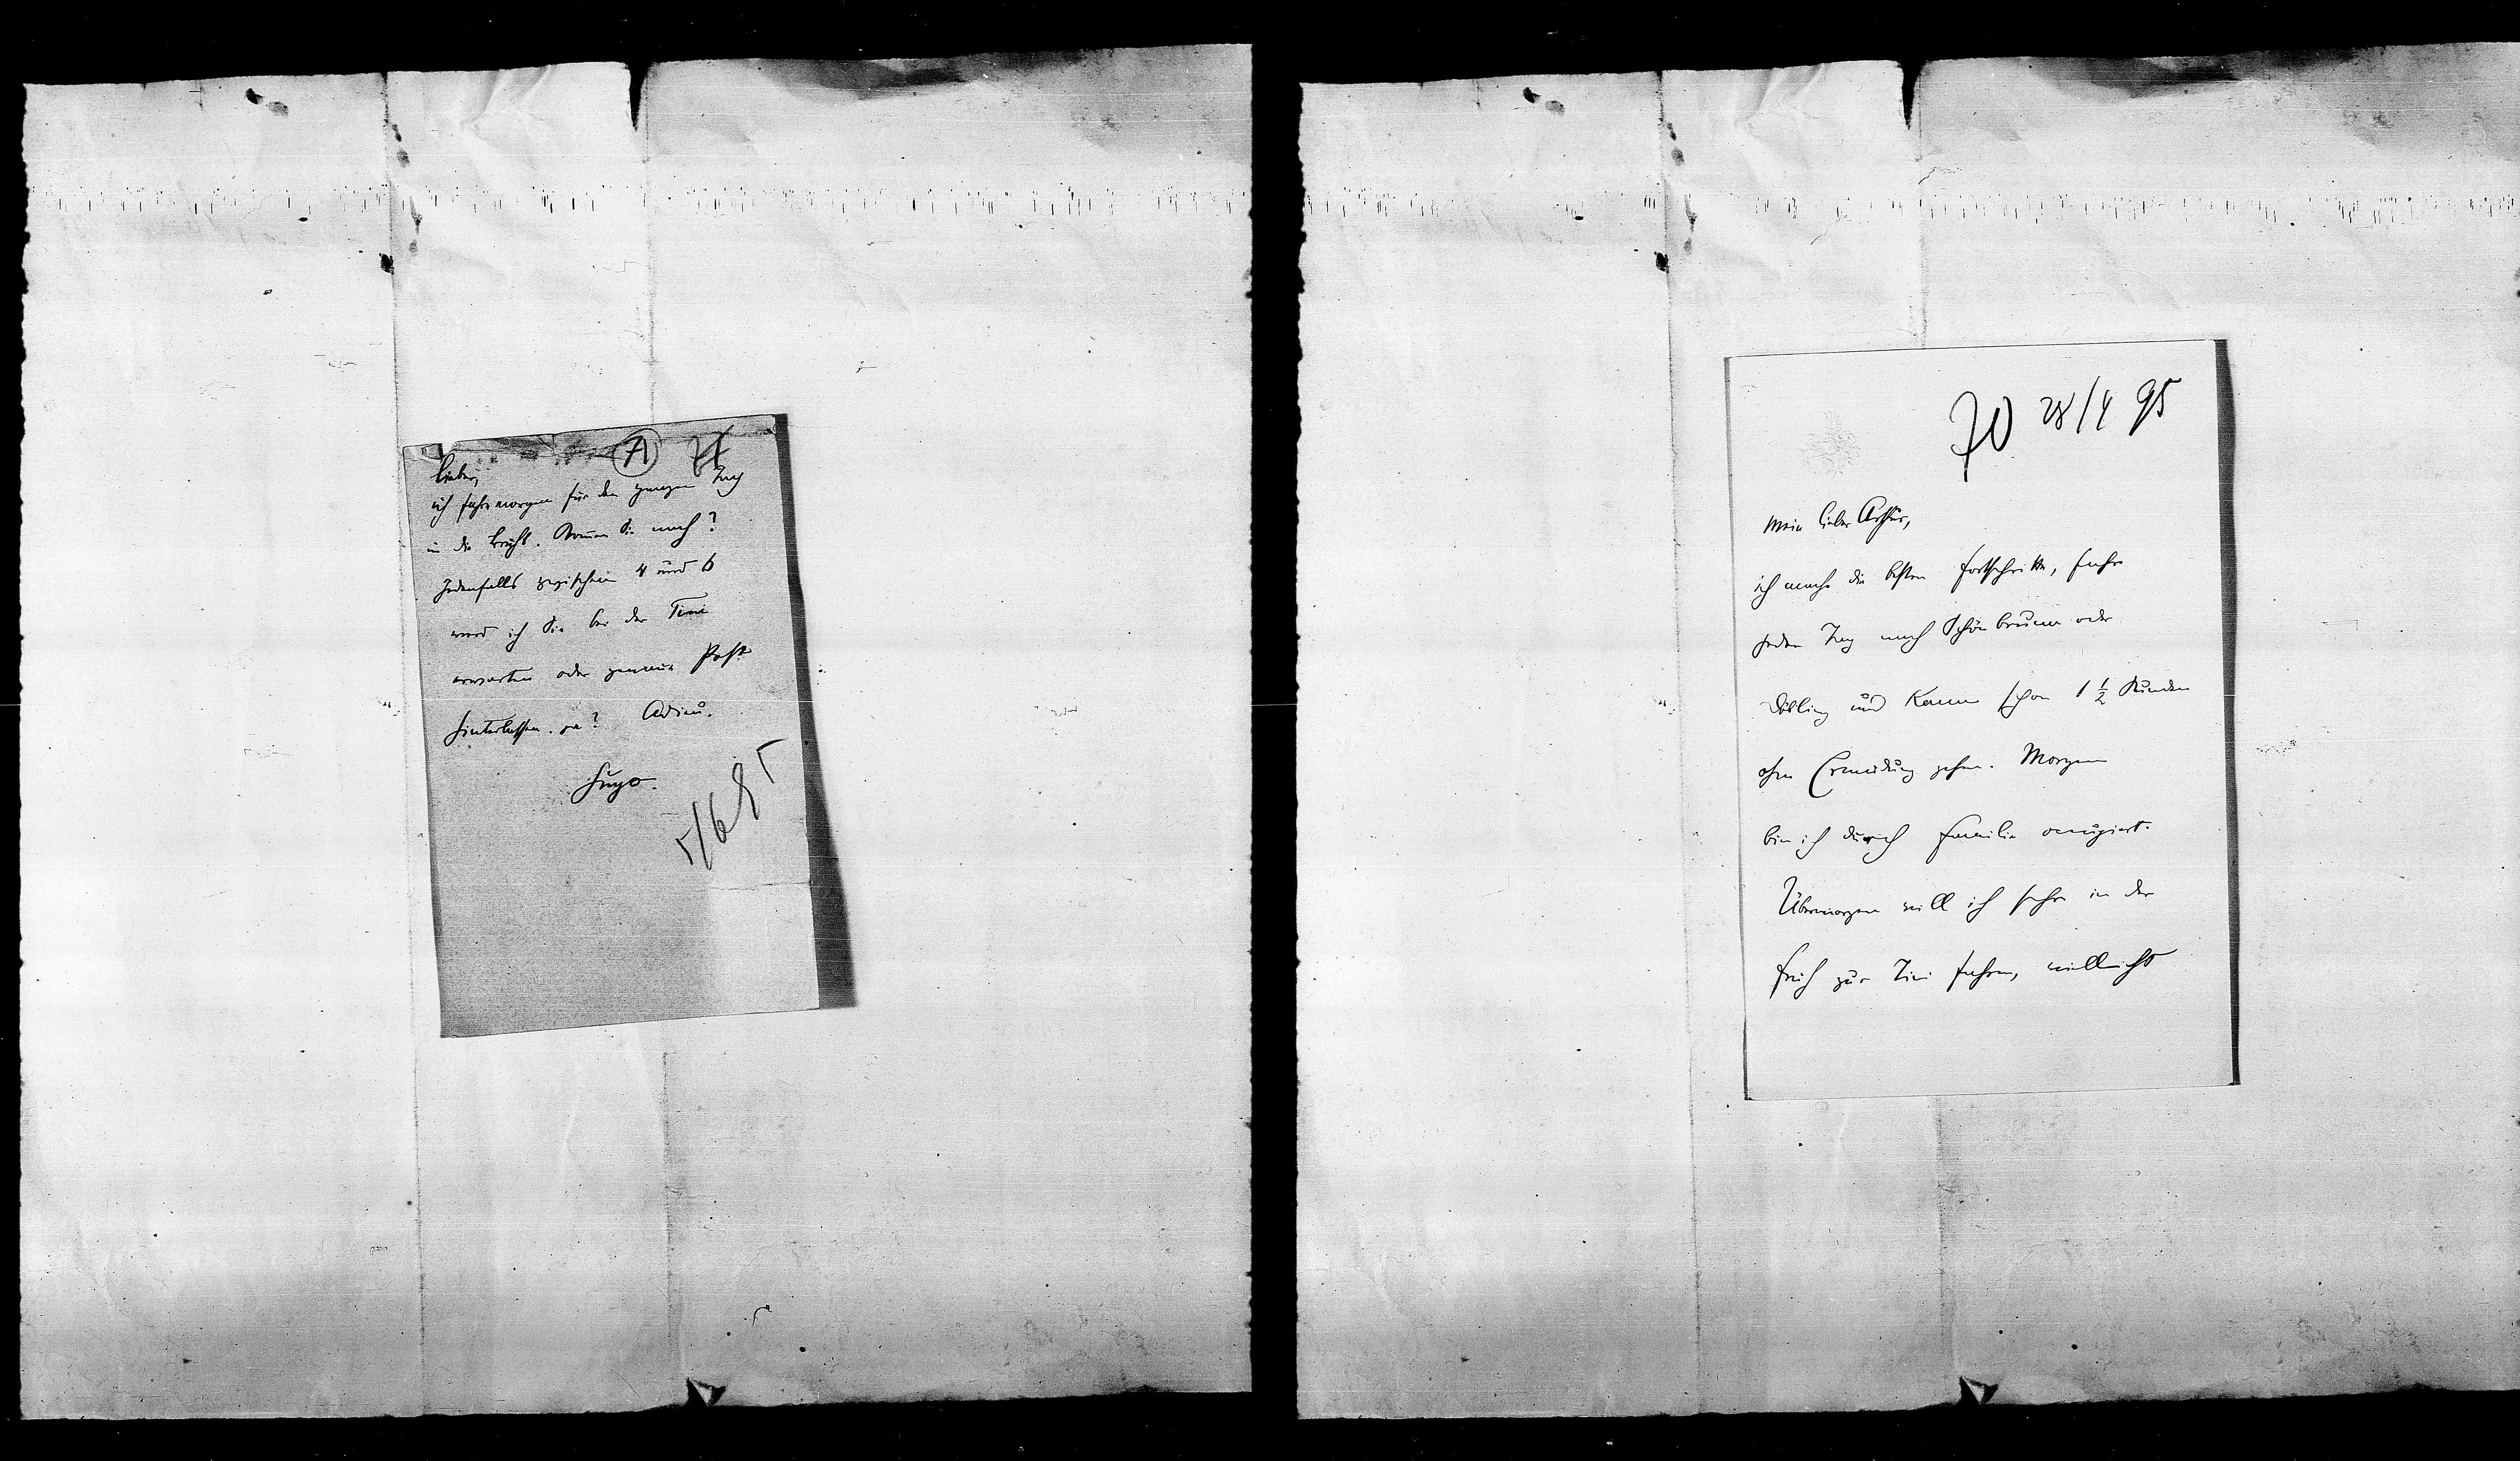 71
Lieber,
ich fahre morgen für den ganzen Tag
in die Brühl. Kommen Sie nach?
Jedenfalls zwischen 4 und 6
werd ich Sie bei der Tini
erwarten oder genaue Post
hinterlassen. ja? Adieu.
Hugo.
5/6 95
70 28/4 95
Mein lieber Arthur,
ich mache die besten Fortschritte, fahre
jeden Tag nach Schönbrunn oder
Döbling und kann schon 1 1/2 Stunden
ohne Ermüdung gehen. Morgen
bin ich durch Familie occupiert.
Übermorgen will ich sehr in der
früh zur Tini fahren, vielleicht